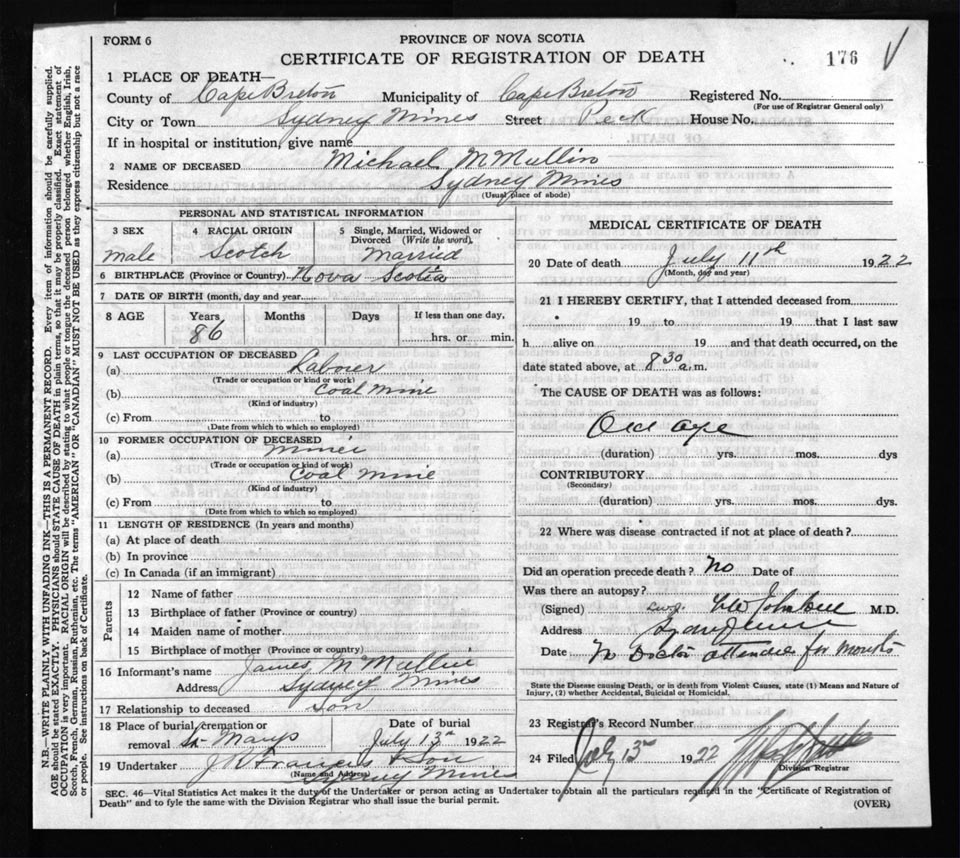 FORM 6
PROVINCE OF NOVA SCOTIA
CERTIFICATE OF REGISTRATION OF DEATH
176
1 PLACE OF DEATH—
County of Cape Breton Municipality of Cape Breton Registered No.
(For use of Registrar General only)
City or Town Sydney Mines Street Peck House No.
If in hospital or institution, give name
2 NAME OF DECEASED Michael McMullin
Residence Sydney Mines
(Usual place of abode)
PERSONAL AND STATISTICAL INFORMATION
3 SEX 4 RACIAL ORIGIN 5 Single, Married, Widowed or
Divorced (Write the word)
male Scotch Married
6 BIRTHPLACE (Province or Country) Nova Scotia
7 DATE OF BIRTH (month, day and year
8 AGE Years Months Days If less than one day,
86 hrs. or min.
9 LAST OCCUPATION OF DECEASED
(a) Laborer
(Trade or occupation or kind or work)
(b) Coal mine
(Kind of industry)
(c) From to
(Date from which to which so employed)
10 FORMER OCCUPATION OF DECEASED
(a) miner
(Trade or occupation or kind or work)
(b) Coal mine
(Kind of industry)
(c) From to
(Date from which to which so employed)
11 LENGTH OF RESIDENCE (In years and months)
(a) At place of death
(b) In province
(c) In Canada (if an immigrant)
Parents
12 Name of father
13 Birthplace of father (Province or country)
14 Maiden name of mother
15 Birthplace of mother (Province or country)
16 Informant's name James McMullin
Address Sydney Mines
17 Relationship to deceased Son
18 Place of burial, cremation or Date of burial
removal St Marys July 13th 1922
19 Undertaker & Son
(Name and Address) Sydney Mines
MEDICAL CERTIFICATE OF DEATH
20 Date of death July 11th 1922
(Month, day and year)
21 I HEREBY CERTIFY, that I attended deceased from
19 to 19 that I last saw
h alive on 19 and that death occurred, on the
date stated above, at 8 30 a.m.
The CAUSE OF DEATH was as follows:
Old age
(duration) yrs. mos. dys
CONTRIBUTORY
(Secondary)
(duration) yrs. mos. dys.
22 Where was disease contracted if not at place of death?
Did an operation precede death? No Date of
Was there an autopsy?
(Signed) M.D.
Address
Date No Doctor attended for months
State the Disease causing Death, or in death from Violent Causes, state (1) Means and Nature of
Injury, (2) whether Accidental, Suicidal or Homicidal.
23 Registrar's Record Number
24 Filed July 13th 1922
Division Registrar
SEC. 46—Vital Statistics Act makes it the duty of the Undertaker or person acting as Undertaker to obtain all the particulars required in the "Certificate of Registration of
Death" and to fyle the same with the Division Registrar who shall issue the burial permit. (OVER)
N.B.—WRITE PLAINLY WITH UNFADING INK—THIS IS A PERMANENT RECORD. Every item of information should be carefully supplied.
AGE should be stated EXACTLY. PHYSICIANS should STATE CAUSE OF DEATH in plain terms, so that it may be properly classified. Exact statement of
OCCUPATION is very important. RACIAL ORIGIN will be described by stating to what people or tongue the deceased person belonged whether English, Irish,
Scotch, French, German, Russian, Ruthenian, etc. The terms "AMERICAN" OR "CANADIAN" MUST NOT BE USED as they express citizenship but not a race
or people. See instructions on back of Certificate.